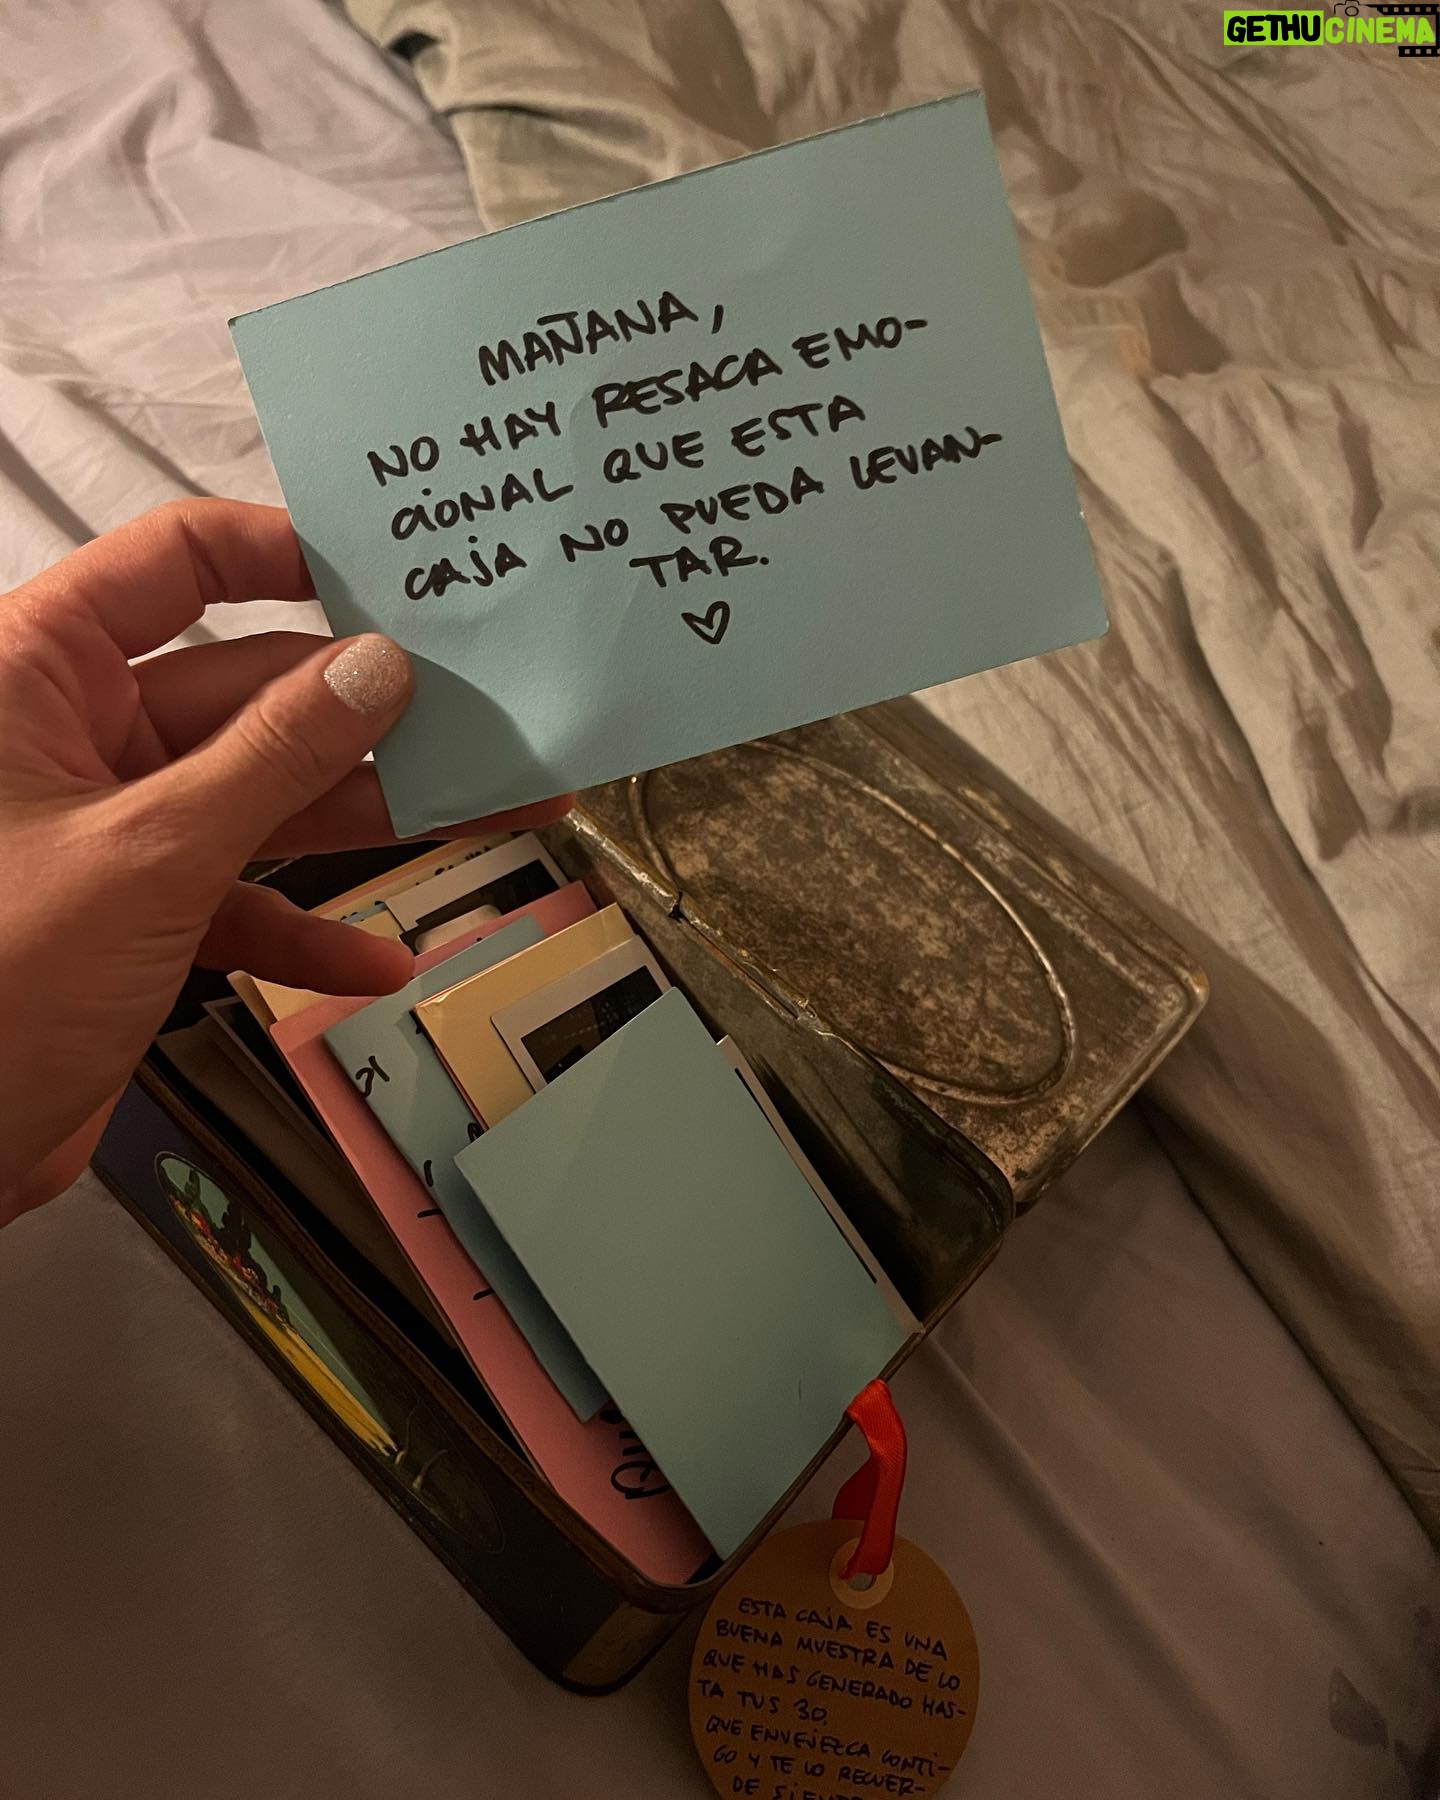 GETHUCINEMA
MAÑANA,
NO HAY RESACA EMO-
CIONAL QUE ESTA
CAJA NO PUEDA LEVAN-
TAR.
ESTA CAJA ES UNA
BUENA MUESTRA DE LO
QUE HAS GENERADO HAS-
TA TUS 30.
QUE ENVEJEZCA CONTI-
GO Y TE LO RECUER-
DE